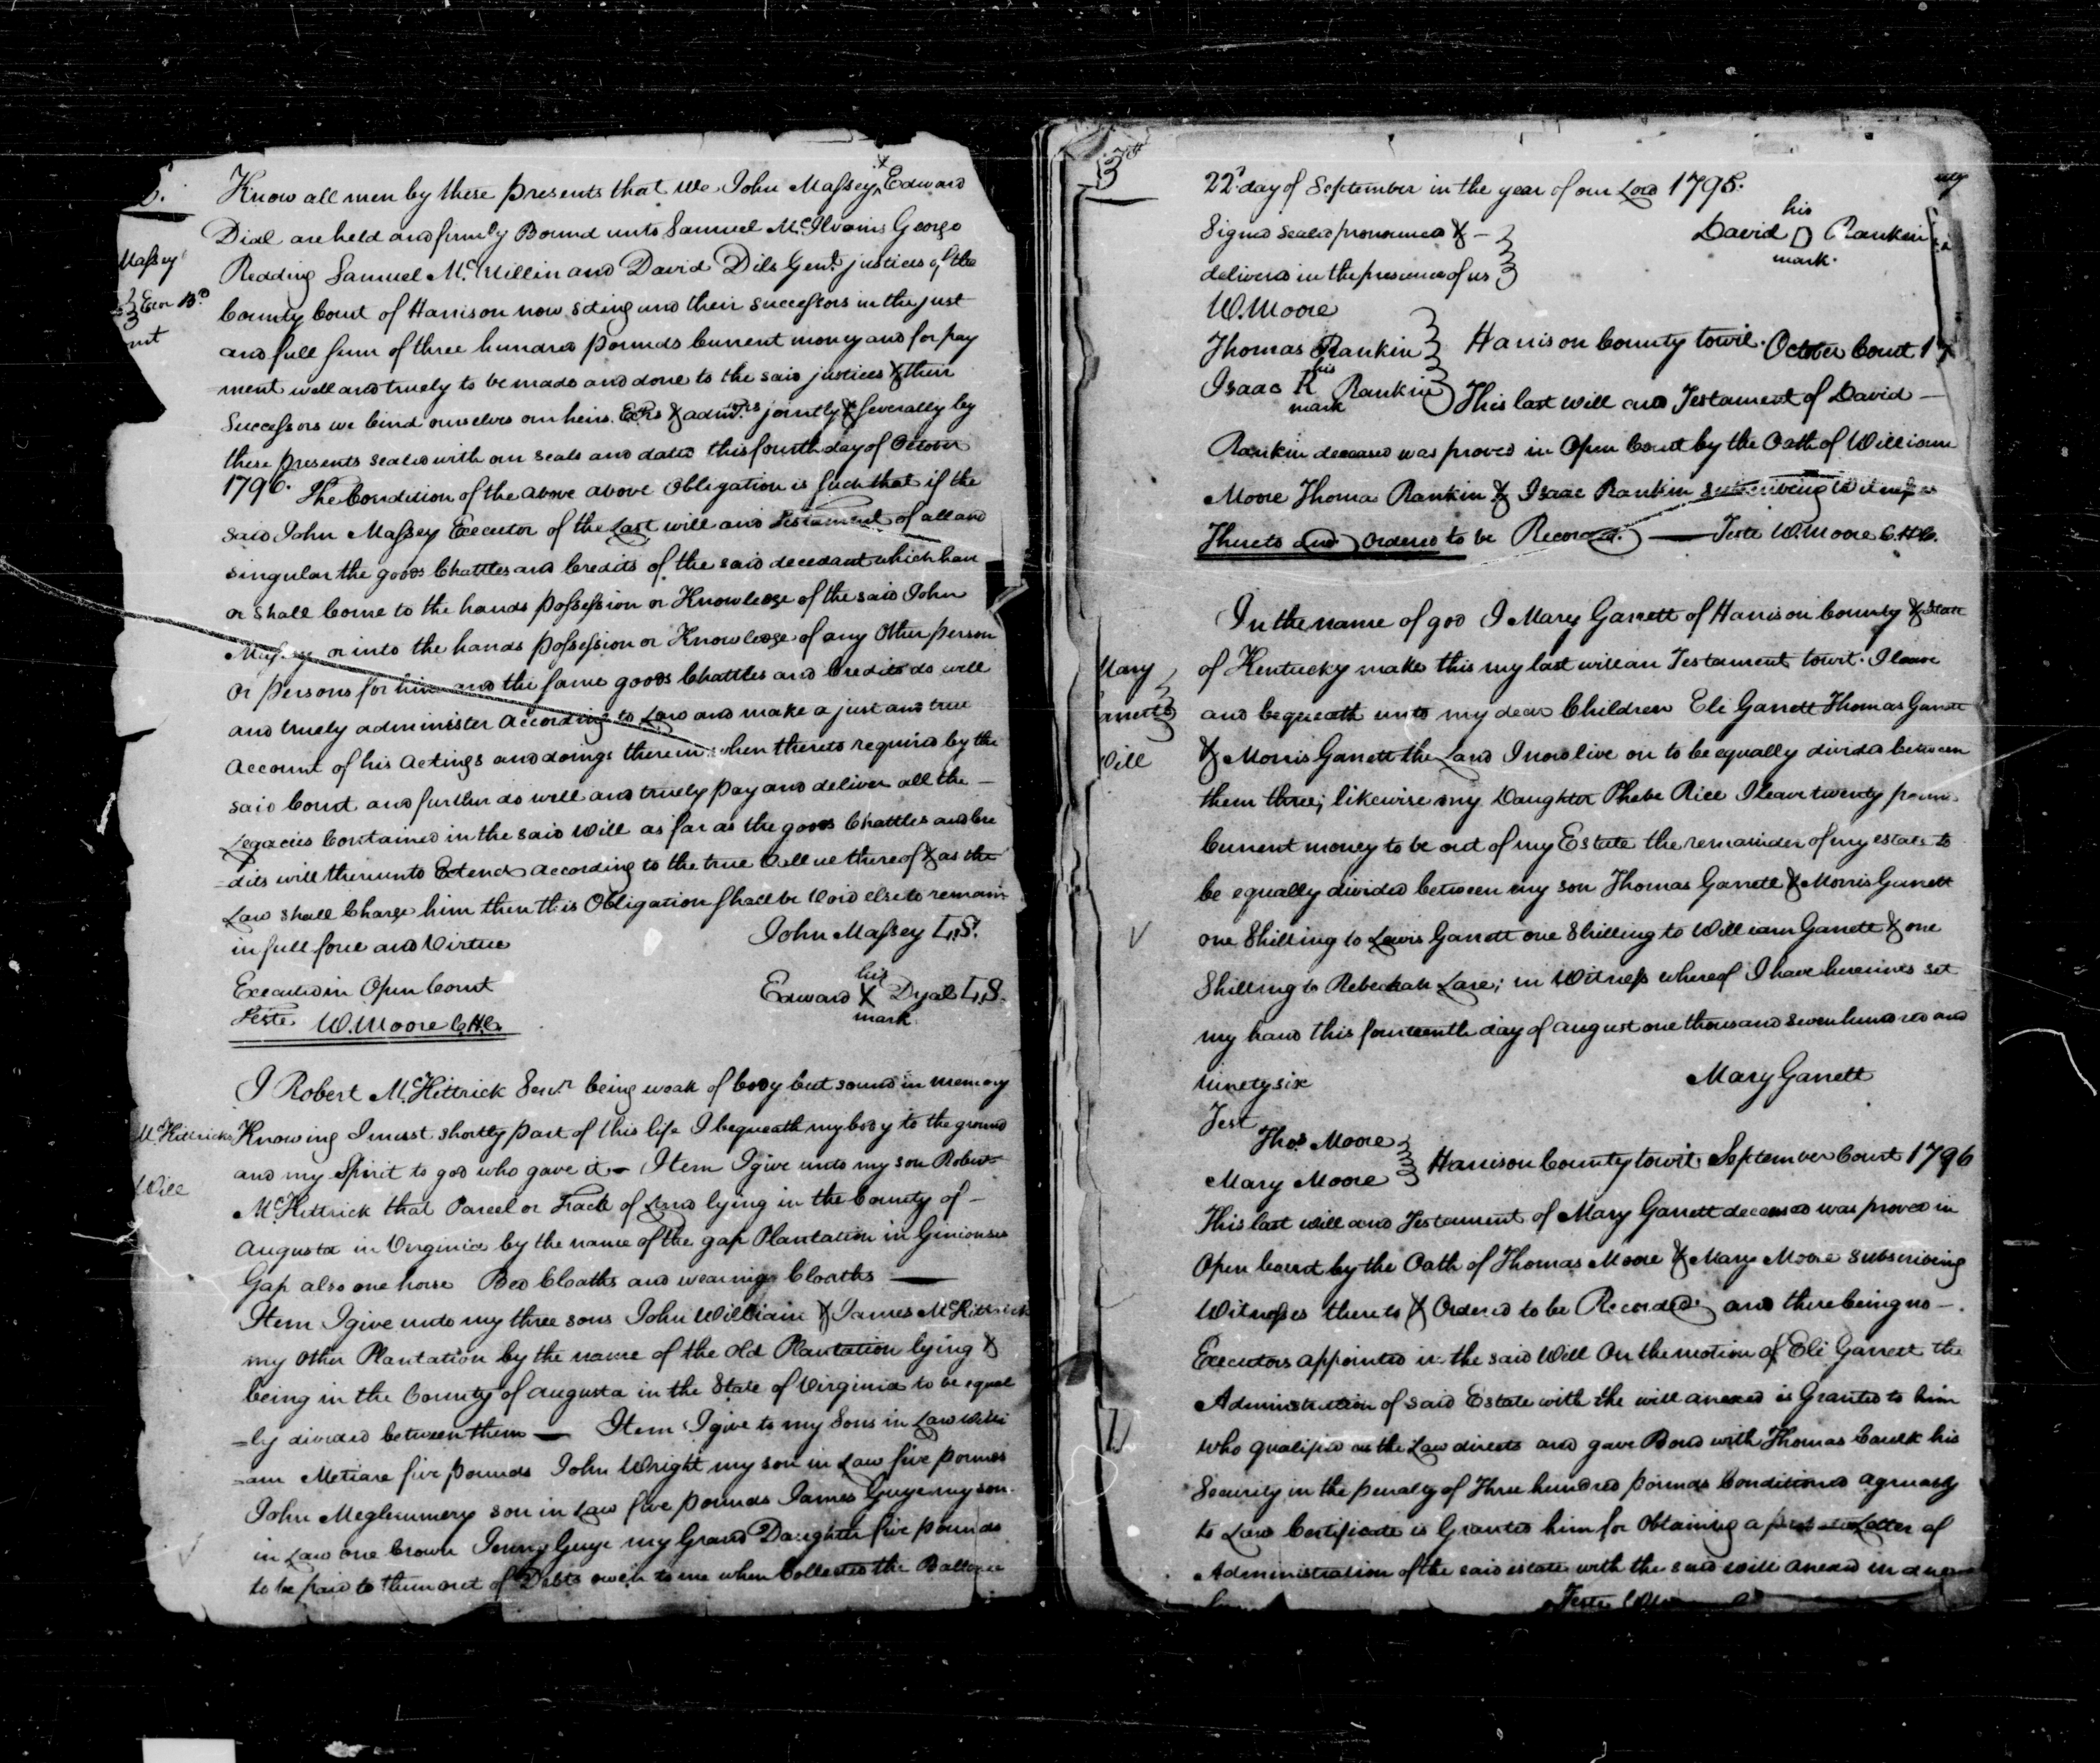 6.
Know all men by these presents that we John Massey & Edward
Dial are held and firmly Bound unto Samuel Mc.Ilvain George
Massey
Redding Samuel Mc.Millin and David Dils Gent. justices of the
Exor Bd
County Court of Harrison now siting and their successors in the just
and full sum of three hundred pounds Current money and for pay
ment well and truely to be made and done to the said justices & their
Successors we bind ourselves our heirs Exrs & admrs jointly & severally by
these presents sealed with our seals and dated this fourth day of October
1796. The Condition of the above above Obligation is such that if the
said John Massey Executor of the Last will and Testament of all and
singular the goods Chattles and Credits of the said decedant which have
or shall Come to the hands possession or Knowledge of the said John
Massey or into the hands possession or Knowledge of any Other person
or persons for him and the same goods Chattles and Credits do well
and truely administer According to Law and make a just and true
account of his actings and doings therein when thereto required by the
said Court and further do well and truely pay and deliver all the —
Legacies Contained in the said Will as far as the goods Chattles and Cre
=dits will thereunto Extend according to the true Vallue thereof & as the
Law shall Charge him then this Obligation shall be Void else to remain
in full force and Virtue
John Massey L.S.
Executed in Open Court
his
Edward X Dyal L.S.
mark
Teste W. Moore C.H.C.
I Robert Mc.Kittrick Senr. being weak of body but sound in memory
Mc.Kittricks
Knowing I must shortly part of this life I bequeath my body to the ground
Will
and my Spirit to god who gave it — Item I give unto my son Robert
Mc.Kittrick that Parcel or Track of Land lying in the County of —
Augusta in Virginia by the name of the gap Plantation in
Gap also one horse Bed Cloaths and wearing Cloaths —
Item I give unto my three sons John William & James McKittrick
my Other Plantation by the name of the Old Plantation lying &
being in the County of Augusta in the State of Virginia to be equal
=ly divided between them — Item I give to my Sons in Law Willi
=am Metiare five pounds John Wright my son in Law five pounds
John Meglummery son in Law five pounds James Guye my son
in Law one Crown Jenny Guye my Grand Daughter five pounds
to be paid to them out of Debts owen to me when Collected the Ballance
3
22d day of September in the year of our Lord 1795.
Signed sealed pronounced & —
his
David D Rankin
mark.
delivered in the presence of us
W. Moore
Thomas Rankin
Harrison County towit. October Court 17
his
Isaac R Rankin
mark
This last will and Testament of David —
Rankin deceased was proved in Open Court by the Oath of William
Moore Thoma Rankin & Isaac Rankin subscribing Witnesses
Thereto and Ordered to be Recorded. — Teste W. Moore C.H.C.
In the name of god I Mary Garrett of Harrison County & State
Mary
Garretts
Will
of Kentucky make this my last will an Testament towit. I leave
and bequeath unto my dear Children Eli Garrett Thomas Garrett
& Morris Garrett the Land I now live on to be equally divided between
them three; likewise my Daughter Phebe Rice I leave twenty pounds
Current money to be out of my Estate the remainder of my estate to
be equally divided between my son Thomas Garrett & Morris Garrett
one Shilling to Lewis Garrett one Shilling to William Garrett & one
Shilling to Rebeckah Lare; in Witness whereof I have hereunto set
my hand this fourteenth day of august one thousand seven hundred and
Ninety six
Mary Garrett
Test
Thos. Moore
Mary Moore
Harrison County towit September Court 1796
This last will and Testament of Mary Garrett deceased was proved in
Open Court by the Oath of Thomas Moore & Mary Moore subscribing
Witnesses thereto & Ordered to be Recorded and there being no —
Executors appointed in the said Will On the motion of Eli Garrett the
Administration of said Estate with the will anexed is Granted to him
who qualified as the Law directs and gave Bond with Thomas Caulk his
Security in the penalty of Three hundred pounds Conditioned agreeably
to Law Certificate is Granted him for Obtaining a Letter of
Administration of the said estate with the said will anexed in due
Teste